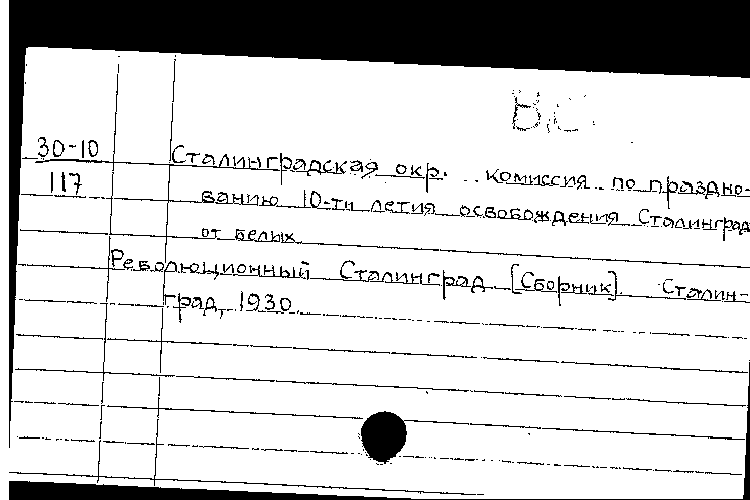 В.С.
30-10
117
Сталинградская окр. комиссия по праздно-
ванию 10-ти летия освобождения Сталинград
от белых
Революционный Сталинград [Сборник]. Сталин-
град, 1930.